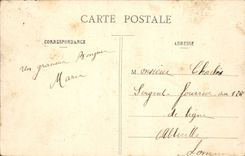 CARTE POSTALE
CORRESPONDANCE
ADRESSE
Un gracieux Bonjour
Marie
Monsieur Charles
Sergent Fourrier au 128
de ligne
Abbeville
Somme